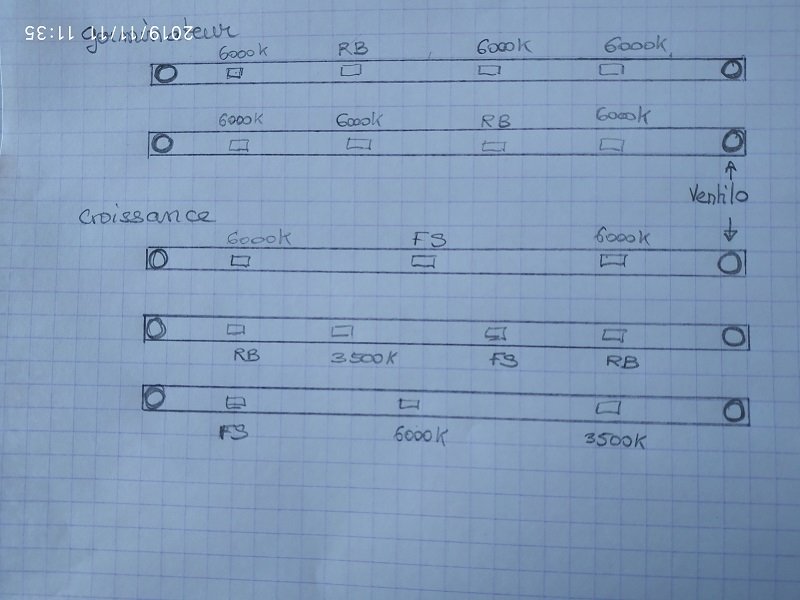 germinateur
2019/11/11 11:35
6000K RB 6000K 6000K
6000K 6000K RB 6000K
Ventilo
croissance
6000K FS 6000K
RB 3500K FS RB
FS 6000K 3500K